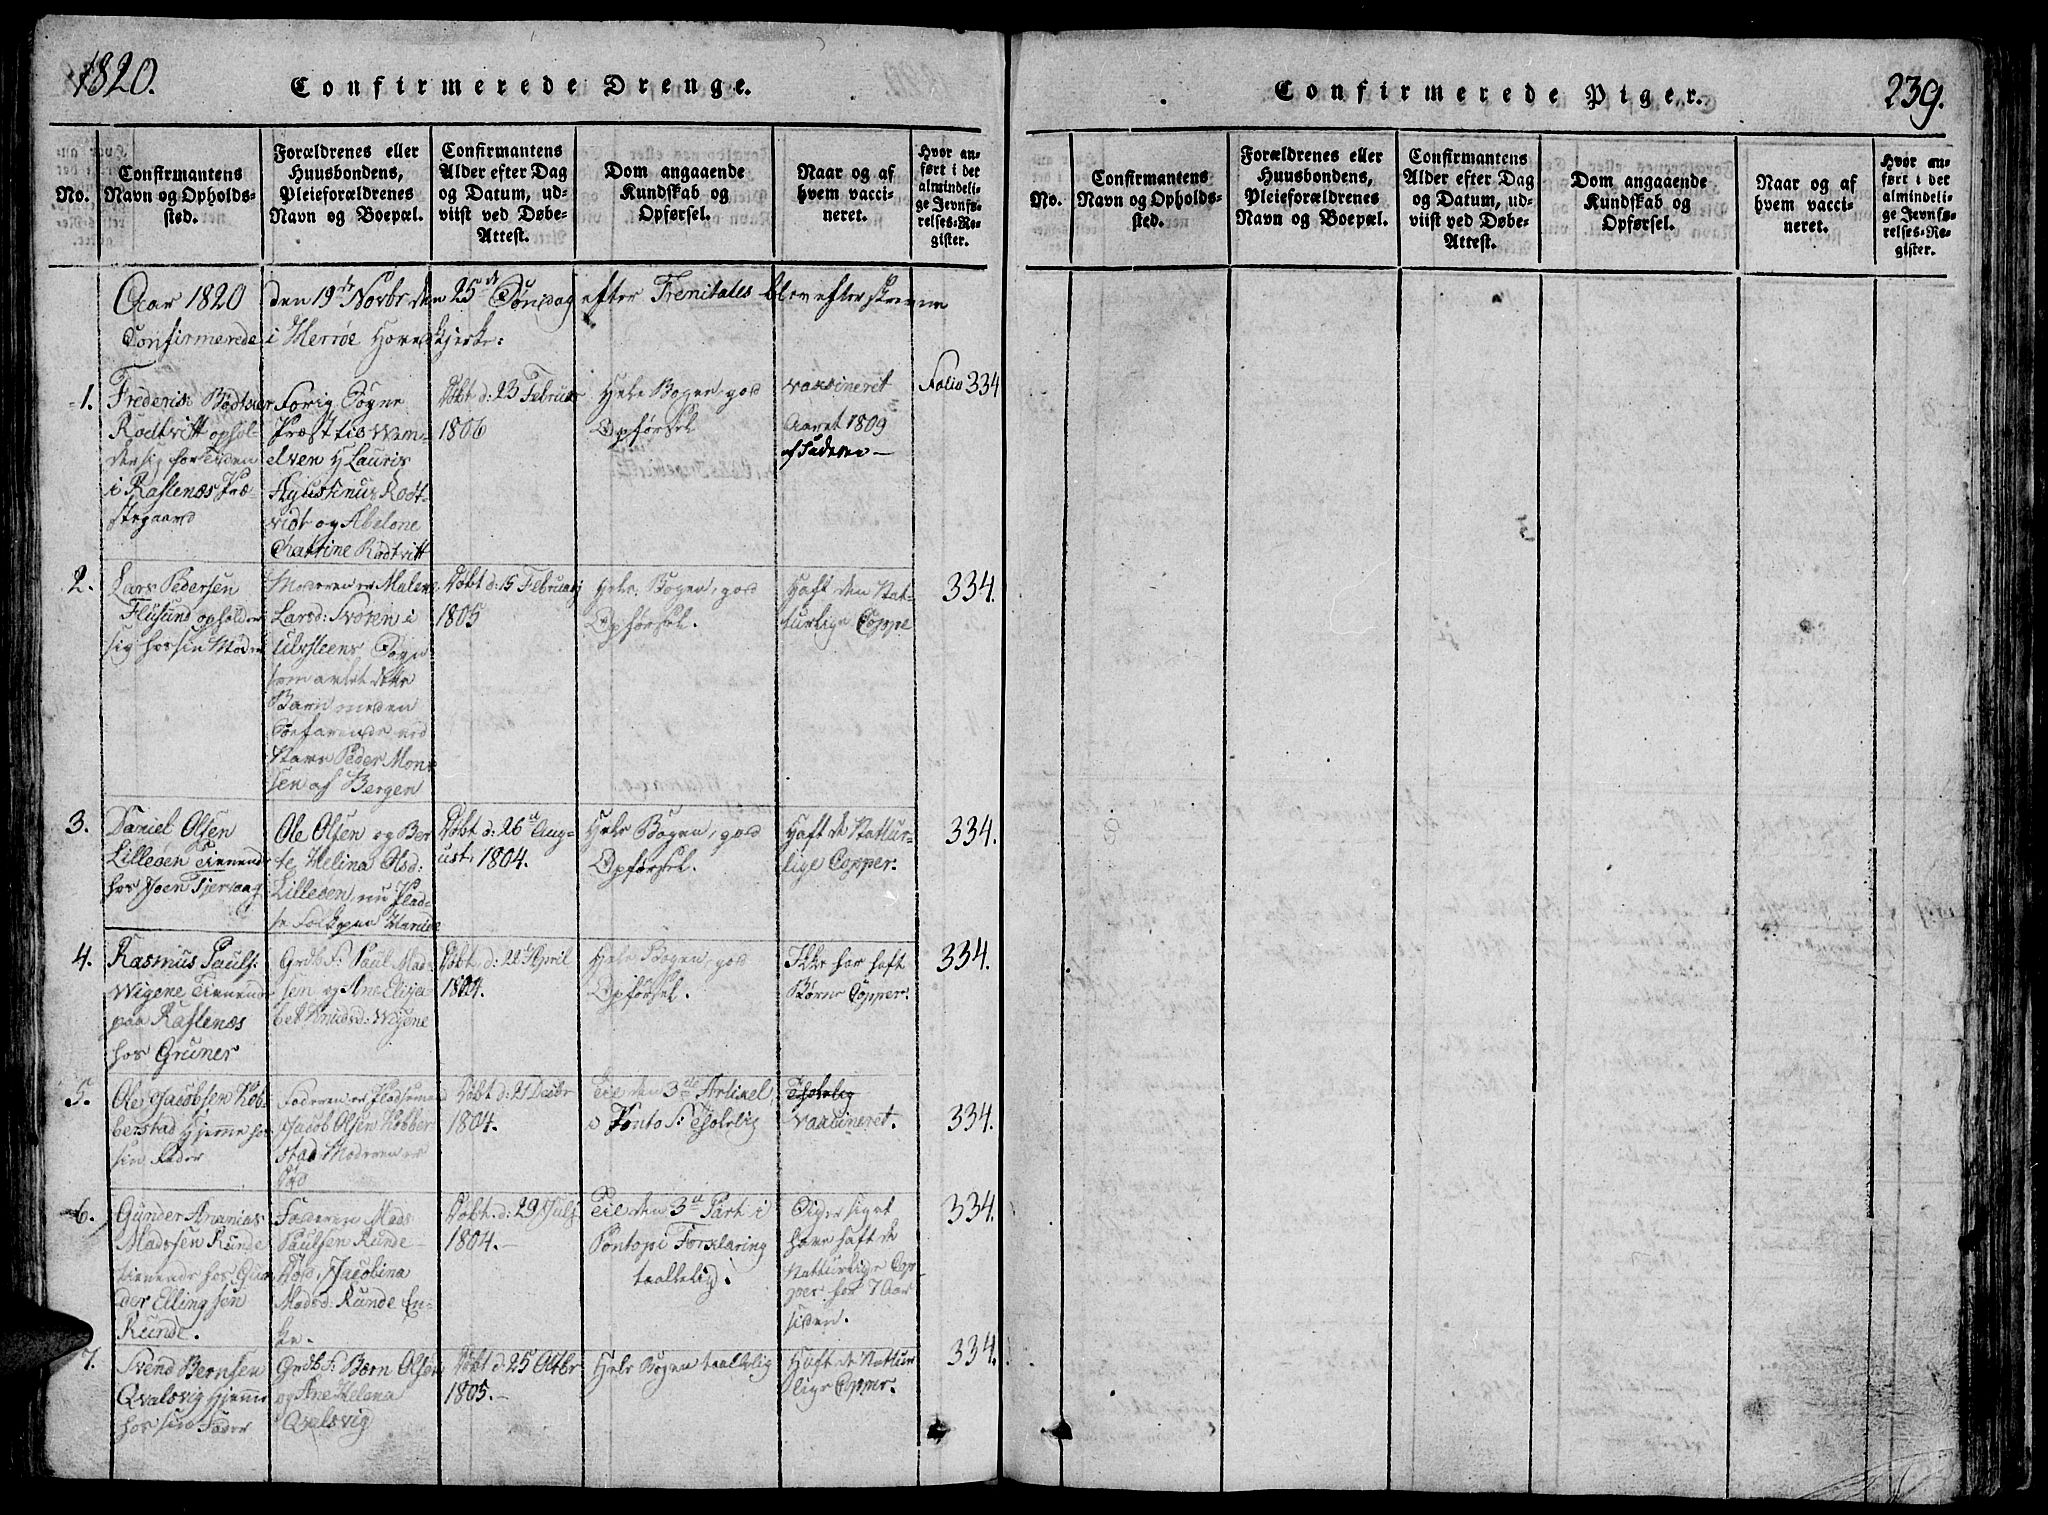 1820.
Confirmerede Drenge.
No.
Confirmantens Navn og Opholds-sted.
Forældrenes eller Huusbondens, Pleieforældrenes Navn og Boepæl.
Confirmantens Alder efter Dag og Datum, ud-viist ved Døbe-Attest.
Dom angaaende Kundskab og Opførsel.
Naar og af hvem vacci-neret.
Hvor an-ført i det almindeli-ge Jevnfø-relses-Re-gister.
Aar 1820 den 19de Novbr den 25de Søndag efter Trenitates blev efterskrevne
Confirmerede i Herrøe Hovedkjerke:
1.
Frederik Bödtver
Rodtvitt ophol-
der sig for Tiden
i Raftenæs Præ-
stegaard
Forig Sogne
Præst til Vam-
elven H Lauris
Agustinus Rodt-
vidt og Abelone
Cattrine Rodtvitt
Döbt d: 23 Februar
1806
Hele Bogen, god
Opförsel
vaxineret
Aaret 1809
af Faderen -
Folio 334
2.
Lars Pedersen
Flusund opholder
sig hos sin Moder
Moderen er Malene
Larsd: Svoren i
Ulvsteens Sogn
som avlet dette
Barn med en
Söefarende ved
Navn Peder Mon-
sen af Bergen
Döbt d: 15 Februarj
1805
Hele Bogen, god
Opförsel.
Haft den Nat-
turlige Coppe
334.
3.
Daniel Olsen
Lilleøen tienende
hos Joen Tjervaag
Ole Olsen og Ber
te Helina Olsd:
Lilleøen, nu Plad-
se Folk paa
Döbt d: 26 Aug-
ust: 1804.
Hele Bogen, god
Opförsel.
Haft de Nattur-
lige Copper.
334.
4.
Rasmus Pauls:
Wigene tienende
paa Raftenæs
hos Gruner
Grdb F: Paul Mad-
sen og Ane Elisa-
bet Knudsd: Wigene
Döbt d: 22 April
1804.
Hele Bogen, god
Opförsel.
Ikke har haft
Börne Copper.
334.
5.
Ole Jacobsen Kob-
berstad hjemme hos
sin Fader
Faderen er Pladsemand
Jacob Olsen Kobber
stad Moderen er
Död
Döbt d: 21 Decbr
1804.
Til den 3de Artikel,
i Ponto F: Taalelig
Vaxineret.
334.
6.
Gunder Ananias
Madssen Runde
tienende hos Gun
der Ellingsen
Runde.
Faderen Mads
Paulsen Runde
Död, Jacobina
Madsd: Runde En-
ke.
Döbt d: 29 Julj
1804.
Til den 3de Part i
Pontopi Forklaring
taallelig.
Siger siget
have haft de
Natturlige Cop
per for 7 Aar
siden.
334.
7.
Svend Bernsen
Qvalsvig hjemme
hos sin Fader
Grdb F: Bærn Olsen
og Ane Helena
Qvalsvig
Döbt d: 25 Octbr
1805.
Hele Bogen taallelig
Haft de Nattur
lige Copper.
334.
Confirmerede Piger.
239.
No.
Confirmantens Navn og Opholds-sted.
Forældrenes eller Huusbondens, Pleieforældrenes Navn og Boepæl.
Confirmantens Alder efter Dag og Datum, ud-viist ved Døbe-Attest.
Dom angaaende Kundskab og Opførsel.
Naar og af hvem vacci-neret.
Hvor an-ført i det almindeli-ge Jevnfø-relses-Re-gister.